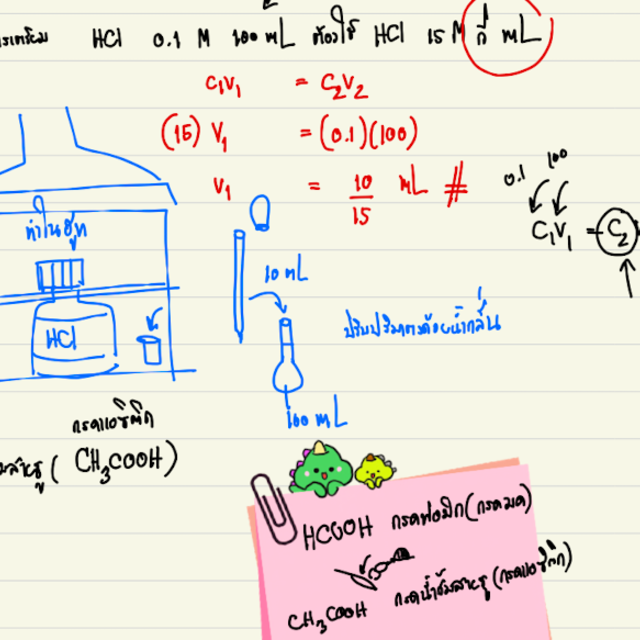 HCl 0.1 M 100 mL ต้องใช้ HCl 15 M กี่ mL
C₁V₁ = C₂V₂
(15) V₁ = (0.1)(100)
V₁ = 10/15 mL #
0.1 100
C₁V₁ = C₂
ทำในฮู้ด
10 mL
HCl
ปรับปริมาตรด้วยน้ำกลั่น
100 mL
กรดแอซิติก
(CH₃COOH)
HCOOH กรดฟอมิก (กรดมด)
CH₃COOH กรดน้ำส้มสายชู (กรดแอซิติก)